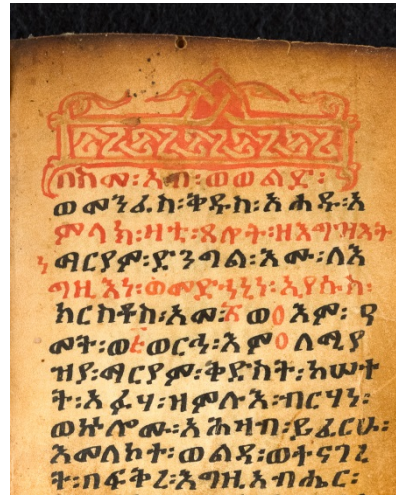 በስመ፡አብ፡ወወልድ፡
ወመንፈስ፡ቅዱስ፡አሐዱ፡አ
ምላክ፡ዛቲ፡ጸሎት፡ዘእግዝእት
ነ ማርያም፡ድንግል፡እሙ፡ለእ
ግዚእነ፡ወመድኃኒነ፡ኢየሱስ፡
ክርስቶስ፡አመ፡
መት፡ ለሚያ
ዝያ፡ማርያም፡ቅድስት፡ከሠተ
ት፡አፉሃ፡ዘምሉእ፡ብርሃነ፡
ወኵሎሙ፡አሕዛብ፡ይፈርሁ፡
እመለኮት፡ወልዳ፡ወተናገረ
ት፡በፍቅረ፡እግዚአብሔር፡